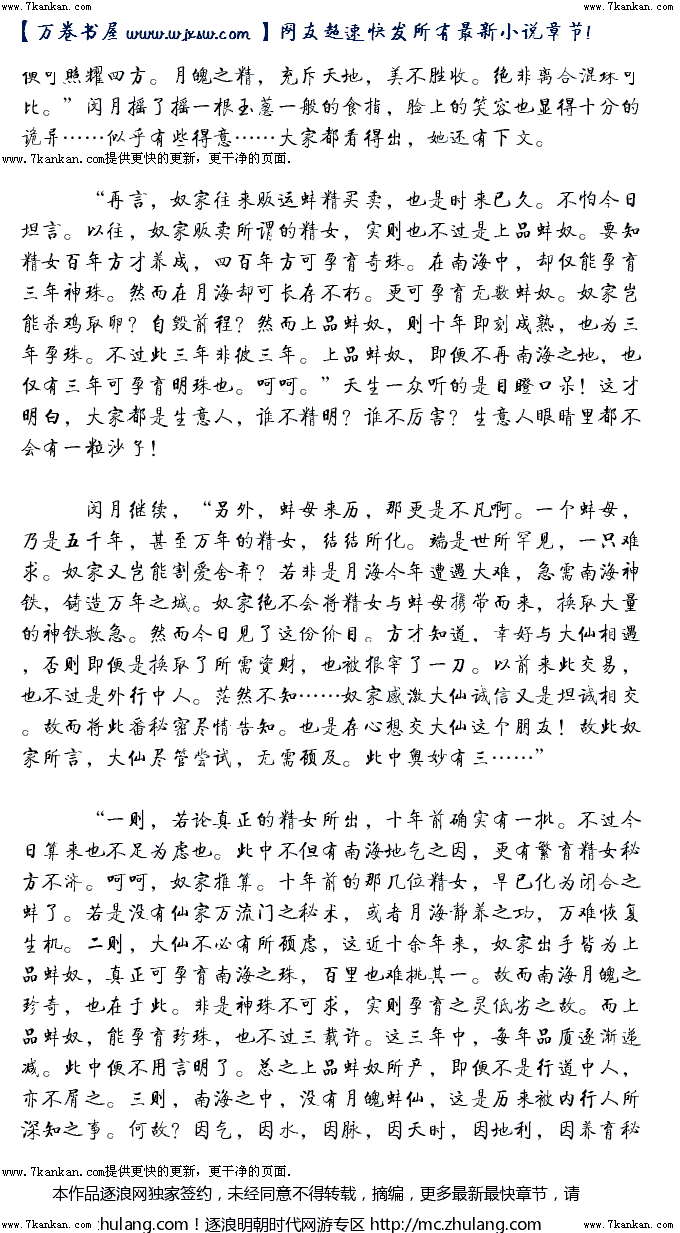 www.7kankan.com www.7kankan.com www.7kankan.com www.7kankan.com
【万卷书屋 www.wjxsw.com 】网友超速快发所有最新小说章节!
便可照耀四方。月魄之精，充斥天地，美不胜收。绝非离合混珠可
比。”闵月摇了摇一根玉葱一般的食指，脸上的笑容也显得十分的
诡异……似乎有些得意……大家都看得出，她还有下文。
www.7kankan.com提供更快的更新，更干净的页面.
“再言，奴家往来贩运蚌精买卖，也是时来已久。不怕今日
坦言。以往，奴家贩卖所谓的精女，实则也不过是上品蚌奴。要知
精女百年方才养成，四百年方可孕育奇珠。在南海中，却仅能孕育
三年神珠。然而在月海却可长存不朽。更可孕育无数蚌奴。奴家岂
能杀鸡取卵？自毁前程？然而上品蚌奴，则十年即刻成熟，也为三
年孕珠。不过此三年非彼三年。上品蚌奴，即便不再南海之地，也
仅有三年可孕育明珠也。呵呵。”天生一众听的是目瞪口呆！这才
明白，大家都是生意人，谁不精明？谁不厉害？生意人眼睛里都不
会有一粒沙子！
闵月继续，“另外，蚌母来历，那更是不凡啊。一个蚌母，
乃是五千年，甚至万年的精女，结结所化。端是世所罕见，一只难
求。奴家又岂能割爱舍弃？若非是月海今年遭遇大难，急需南海神
铁，铸造万年之城。奴家绝不会将精女与蚌母携带而来，换取大量
的神铁救急。然而今日见了这份价目。方才知道，幸好与大仙相遇
，否则即便是换取了所需资财，也被狠宰了一刀。以前来此交易，
也不过是外行中人。茫然不知……奴家感激大仙诚信又是坦诚相交
。故而将此番秘密尽情告知。也是存心想交大仙这个朋友！故此奴
家所言，大仙尽管尝试，无需顾及。此中奥妙有三……”
“一则，若论真正的精女所出，十年前确实有一批。不过今
日算来也不足为虑也。此中不但有南海地气之因，更有繁育精女秘
方不济。呵呵，奴家推算。十年前的那几位精女，早已化为闭合之
蚌了。若是没有仙家万流门之秘术，或者月海静养之功，万难恢复
生机。二则，大仙不必有所顾虑，这近十余年来，奴家出手皆为上
品蚌奴，真正可孕育南海之珠，百里也难挑其一。故而南海月魄之
珍奇，也在于此。非是神珠不可求，实则孕育之灵低劣之故。而上
品蚌奴，能孕育珍珠，也不过三载许。这三年中，每年品质逐渐递
减。此中便不用言明了。总之上品蚌奴所产，即便不是行道中人，
亦不屑之。三则，南海之中，没有月魄蚌仙，这是历来被内行人所
深知之事。何故？因气，因水，因脉，因天时，因地利，因养育秘
www.7kankan.com提供更快的更新，更干净的页面.
本作品逐浪网独家签约，未经同意不得转载，摘编，更多最新最快章节，请
www.7kankan.com hulang.com！逐浪明朝时代网游专区 http://mc.zhulang.com/ www.7kankan.com